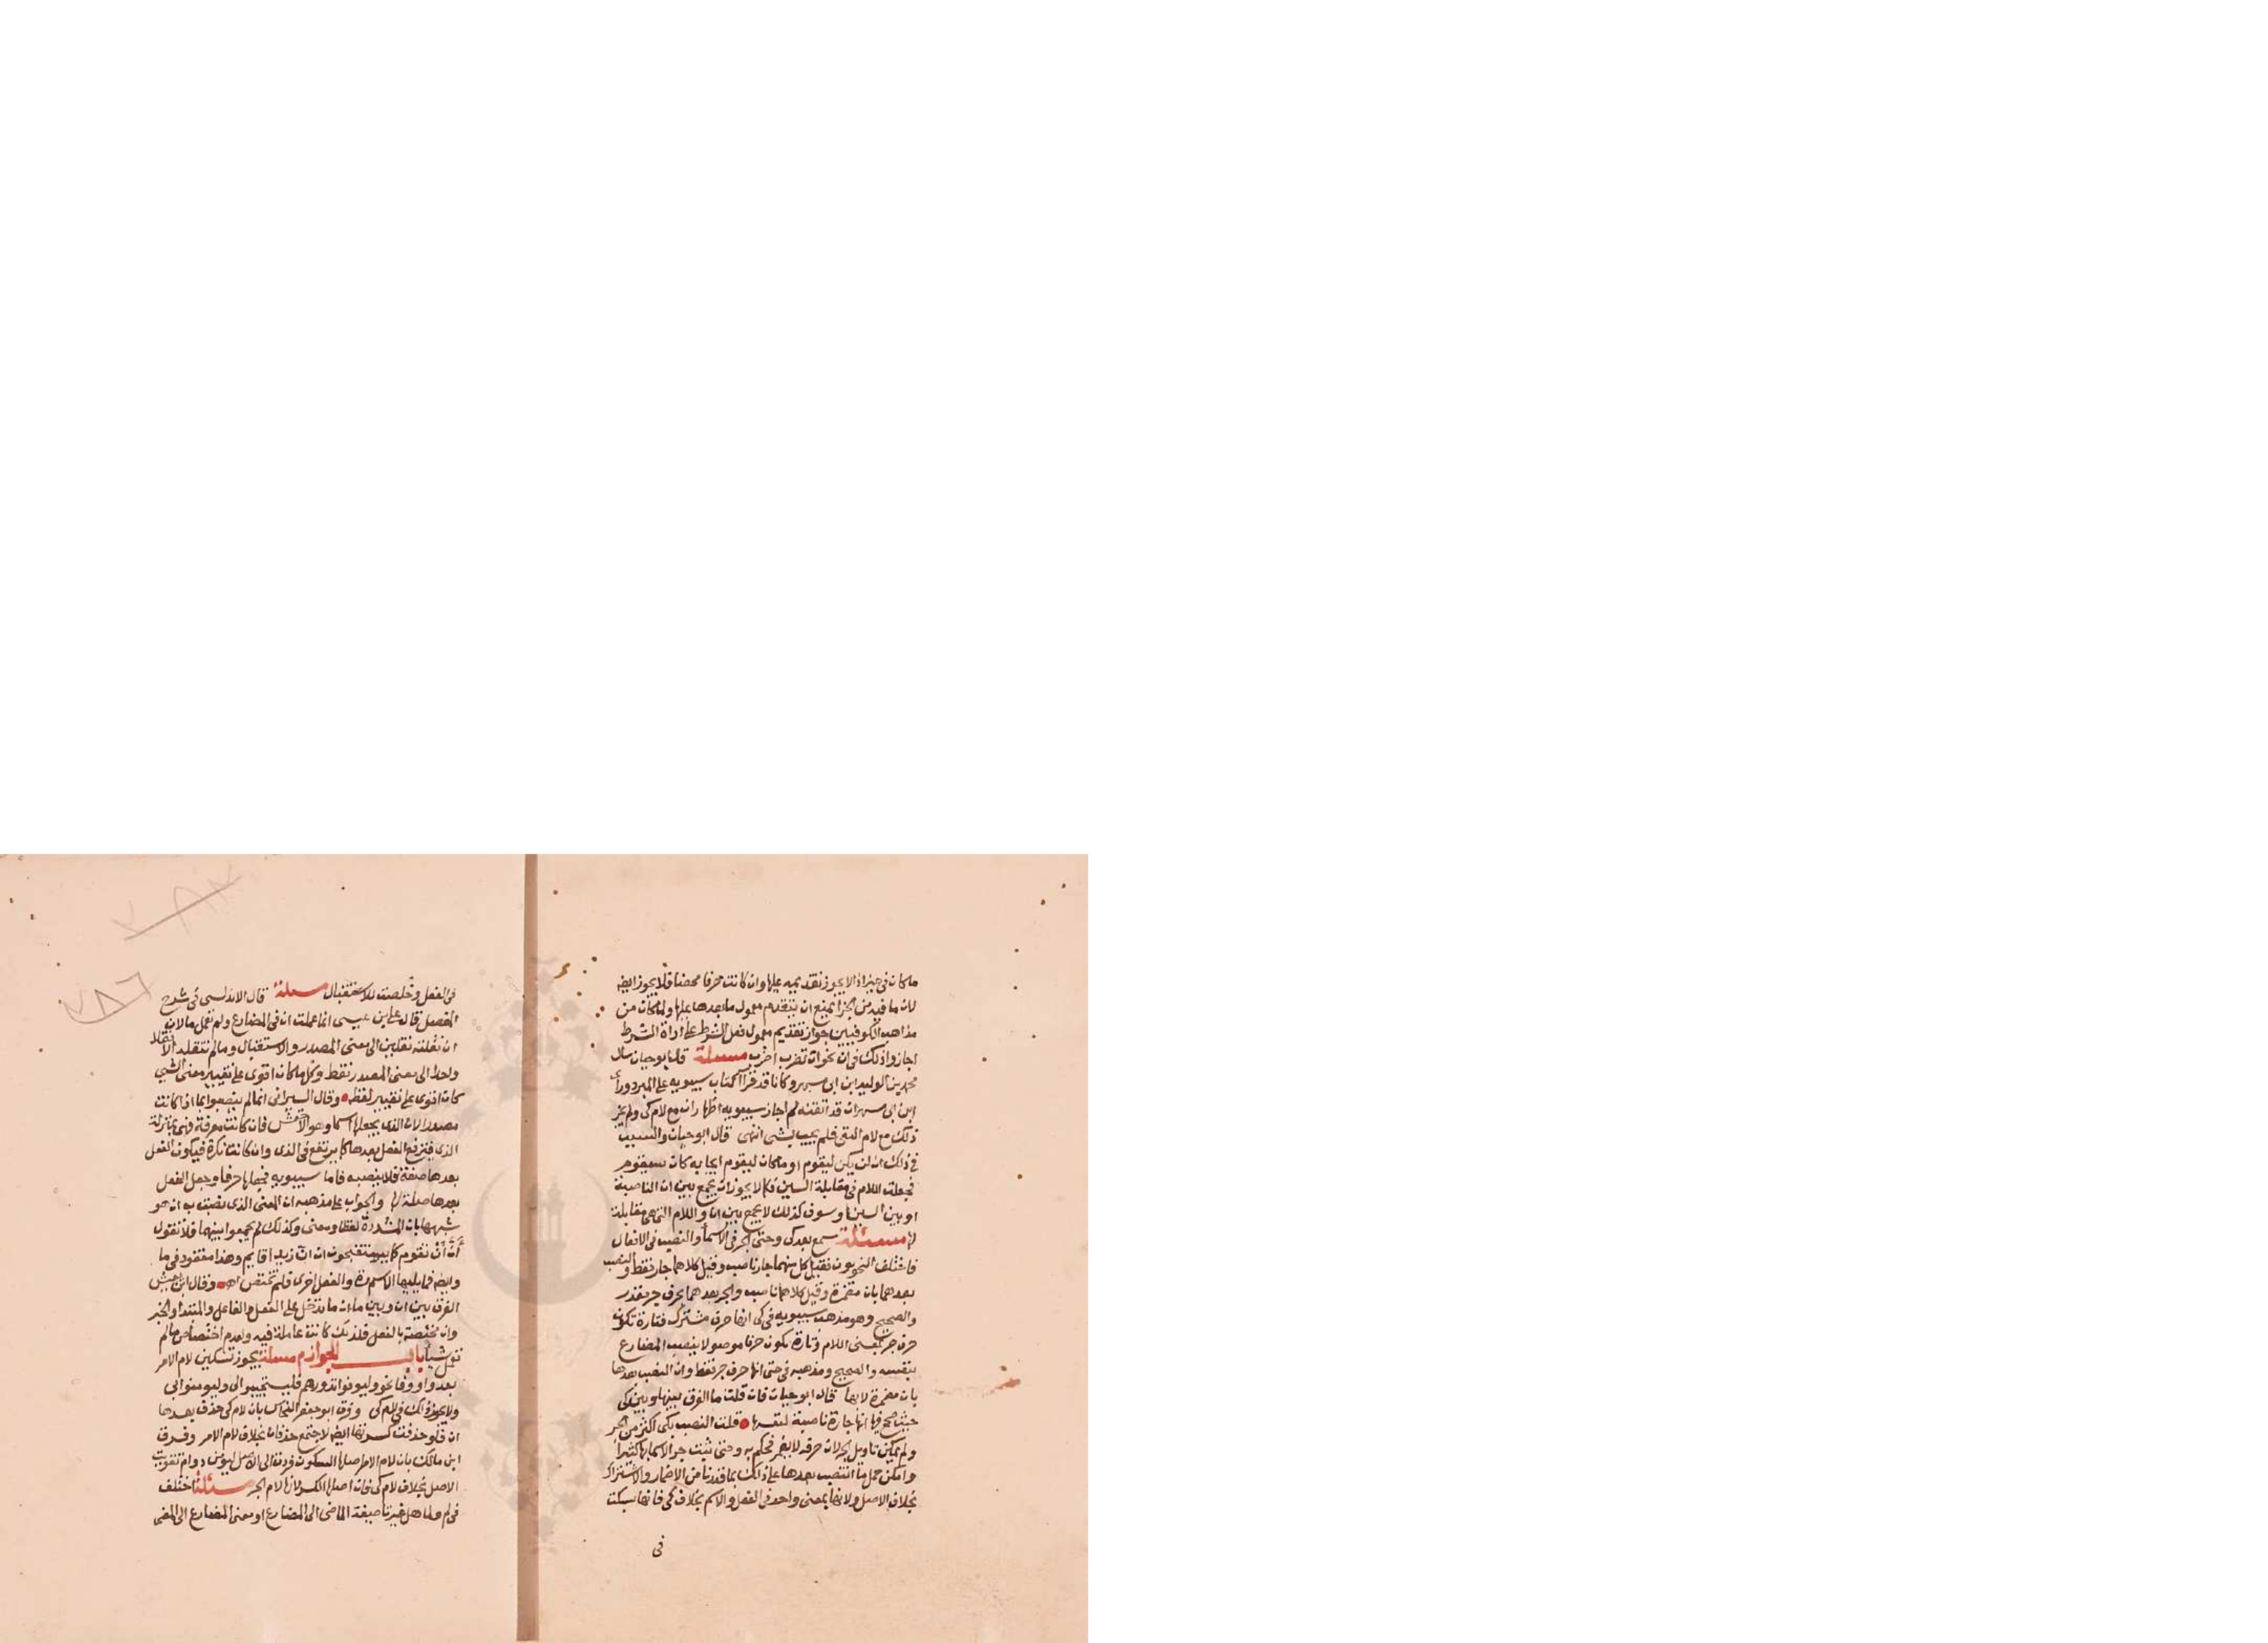 ما كان في حيز اذا لا يجوز تقديمه عليها وان كانت حرفا محضا فلا يجوز ايضا
لان ما فيه من الجزا يمنع ان يتقدم معمول ما بعدها عليها ولما كان من
مذاهب الكوفيين جواز تقديم معمول فعل الشرط على اداة الشرط
اجازوا ذلك في اذن نحو ان تضرب اضرب مسئلة قال ابو حيان سال
محمد بن الوليد ابن ابي مسهر وكانا قد قرأا كتاب سيبويه على المبرد وراى
ابن ابي مسهر ان قد اتقنه لم اجاز سيبويه اظهار ان مع لام كي ولم يجز
ذلك مع لام النفي فلم يجب بشى انتهى قال ابو حيان والسبب
في ذلك ان لن يكن ليقوم او ما كان ليقوم ايجابه كان سيقوم
فجعلت اللام في مقابلة السين فكما لا يجوز ان يجمع بين ان الناصبة
او بين السين او سوف كذلك لا يجمع بين ان واللام التي هي مقابلة
لها مسئلة سمع بعد كي وحتى الجر في الاسما والنصب في الافعال
فاختلف النحويون فقيل كل منهما جار ناصب وقيل كلاهما جار فقط والنصب
بعدهما بان مضمرة وقيل كلاهما ناصب والجر بعدهما بحرف جر مقدر
والصحيح وهو مذهب سيبويه في كي انها حرف مشترك فتارة تكون
حرف جر بمعنى اللام وتارة تكون حرفا موصولا ينصب المضارع
بنفسه والصحيح ومذهبه في حتى انها حرف جر فقط وان النصب بعدها
بان مضمرة لا بها قال ابو حيان فان قلت ما الفرق بينها وبين كي
حيث صحح فيها انها جارة ناصبة بنفسها قلت النصب بكى اكثر من الجر
ولم يمكن تاويل الجر لان حرفه لا يضمر فحكم به وحتى ثبت جر الاسما بها كثيرا
وامكن حمل ما انتصب بعدها على ذلك بما قدرنا من الاضمار والاشتراك
بخلاف الاصل ولانها بمعنى واحد في الفعل والاسم بخلاف كي فانها سبكت
في
في الفعل وخلصت للاستقبال مسئلة قال الاندلسي في شرح
المفصل قال علي بن عيسى انما عملت ان في المضارع ولم تعمل ما لان
ان نقلته نقلين الى معنى المصدر والاستقبال وما لم تنقله الا نقلا
واحدا الى معنى المصدر فقط وكل ما كان اقوى على تغيير معنى الشي
كان اقوى على تغيير لفظه وقال السيرافي انما لم ينصبوا بما اذا كانت
مصدرا لان الذي يجعلها اسما وهو الاخفش فان كانت معرفة فهي بمنزلة
الذي فيرتفع الفعل بعدها كما يرتفع في الذي وان كانت نكرة فيكون الفعل
بعدها صفة فلا ينصبه فاما سيبويه فجعلها حرفا وجعل الفعل
بعدها صلة لها والجواب على مذهبه ان المعنى الذي نصبت به ان هو
شبهها بان المشددة لفظا ومعنى وكذلك لم يجمعوا بينهما فلا تقول
أن أن تقوم كما يستقبحون ان ان زيدا قايم وهذا مفقود في ما
وايضا فما يليها الاسم مرة والفعل اخرى فلم تختص اهـ وقال ابن يعيش
الفرق بين ان وبين ما ان ما تدخل على الفعل والفاعل والمبتدا والخبر
وان مختصة بالفعل فلذلك كانت عاملة فيه ولعدم اختصاص ما لم
تعمل شيأ باب الجوازم مسئلة يجوز تسكين لام الامر
بعد واو وفا نحو وليوفوا نذورهم فليستجيبوا لي وليومنوا بي
ولا يجوز ذلك في لام كي وفرق ابو جعفر النحاس بان لام كي حذف بعدها
ان فلو حذفت كسرتها ايضا لاجتمع حذفان بخلاف لام الامر وفرق
ابن مالك بان لام الامر اصلها السكون فردت الى الاصل ليومن دوام تقويت
الاصل بخلاف لام كي فان اصلها الكسر لانها لام الجر مسئلة اختلف
في لم ولما هل غيرتا صيغة الماضي الى المضارع او معنى المضارع الى المضي